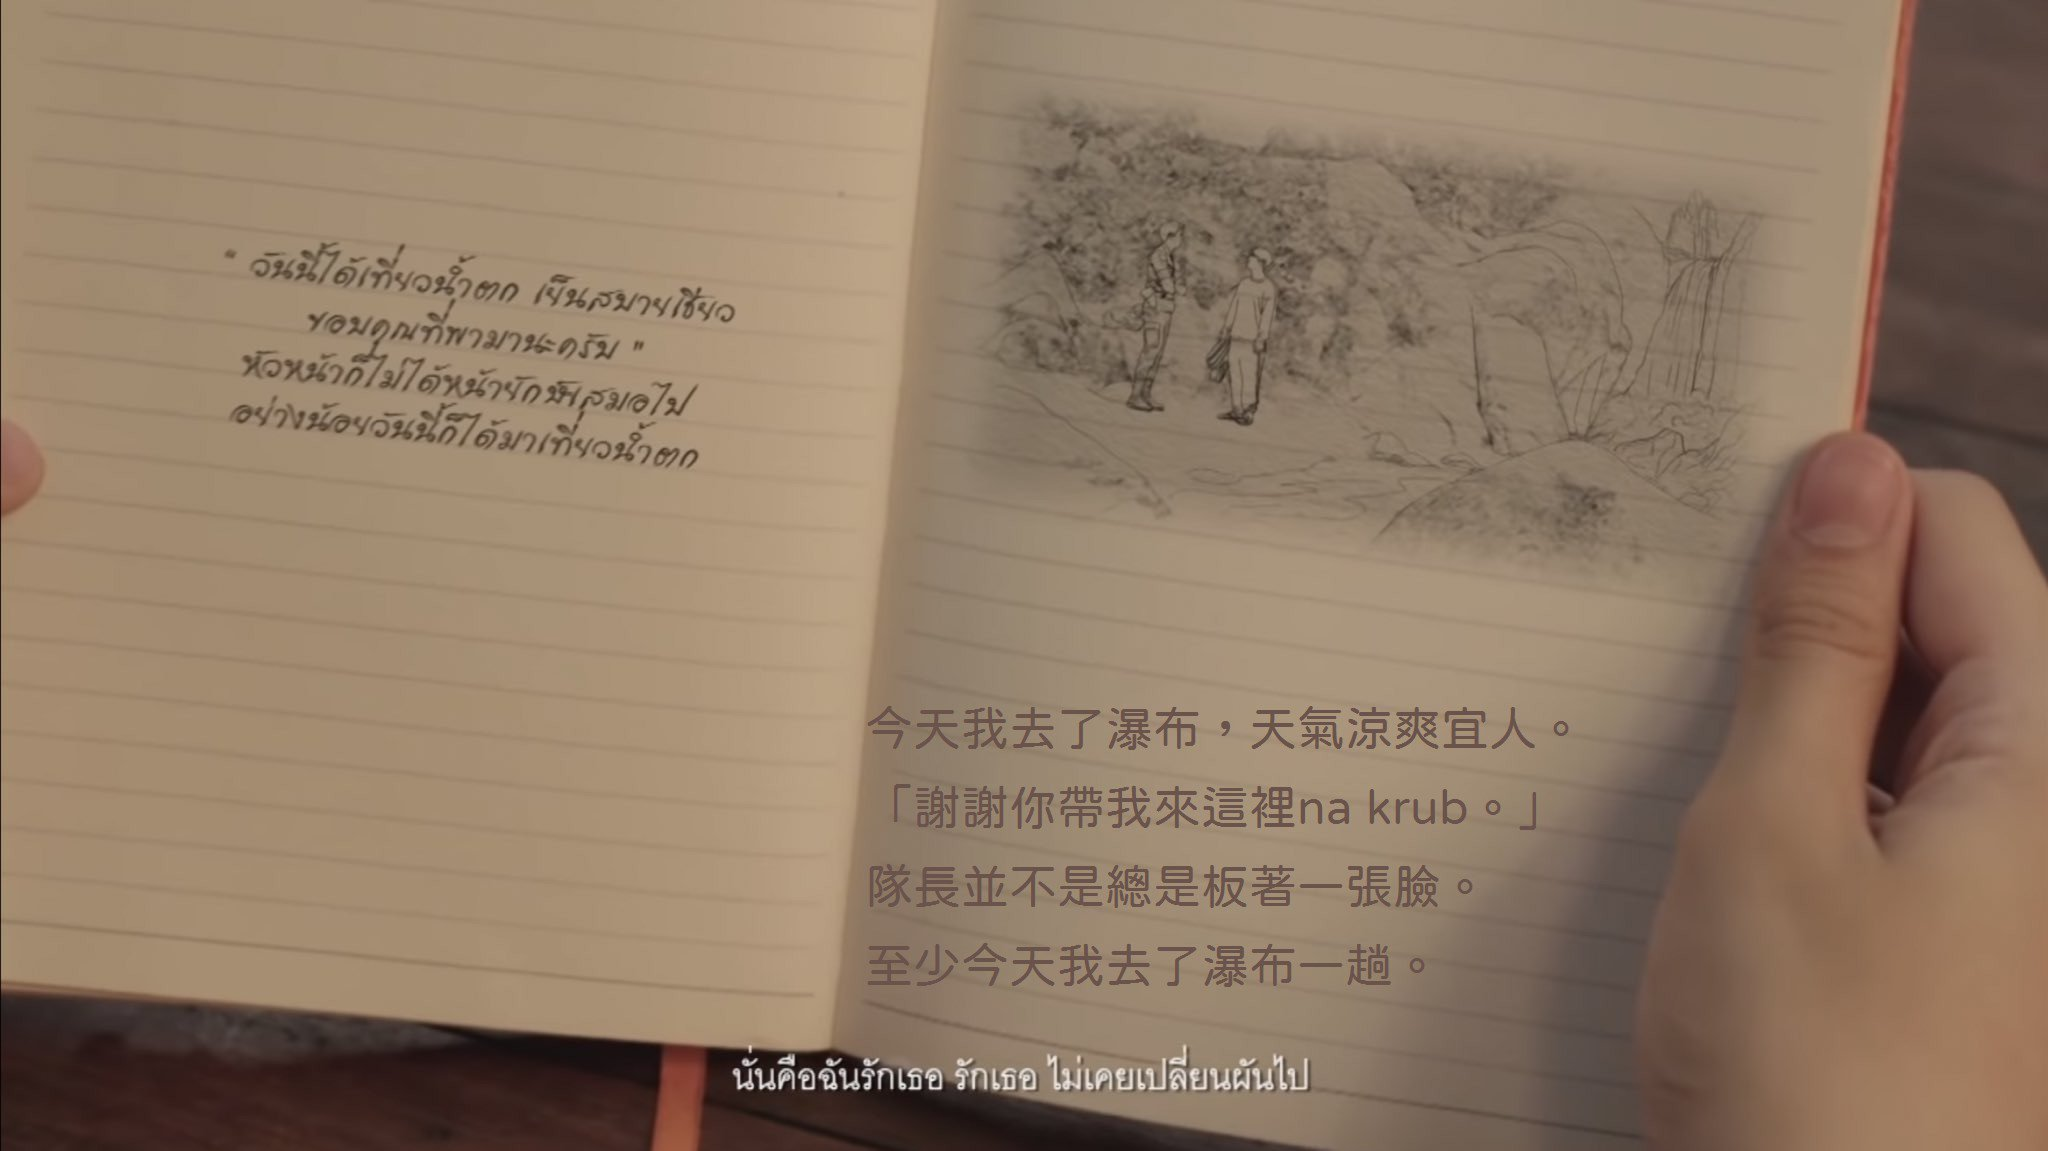 " วันนี้ได้เที่ยวน้ำตก เย็นสบายเชียว
ขอบคุณที่พามานะครับ "
หัวหน้าก็ไม่ได้หน้ายักษ์เสมอไป
อย่างน้อยวันนี้ก็ได้มาเที่ยวน้ำตก
今天我去了瀑布，天氣涼爽宜人。
「謝謝你帶我來這裡na krub。」
隊長並不是總是板著一張臉。
至少今天我去了瀑布一趟。
นั่นคือฉันรักเธอ รักเธอ ไม่เคยเปลี่ยนผันไป